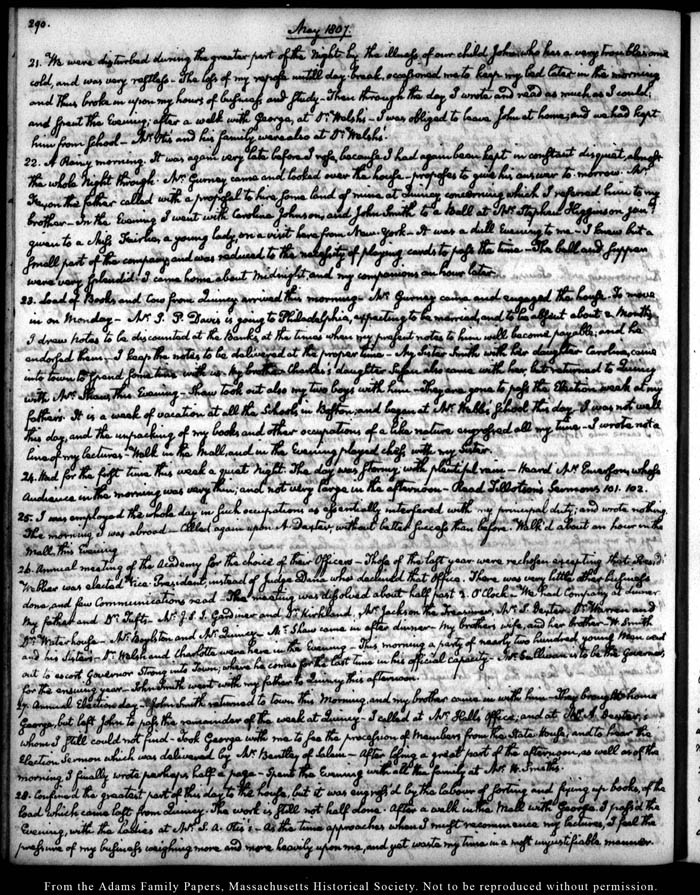 290.
May 1807.
21. We were disturbed during the greater part of the Night by the illness of our child John, who has a very troublesome
cold, and was very restless — The loss of my repose untill day-break, occasioned me to keep my bed later in the morning
and thus broke in upon my hours of business and study — Then through the day I wrote and read as much as I could;
and spent the Evening, after a walk with George, at Dr. Welsh's — I was obliged to leave John at home; and we had kept
him from School — Mr. Otis and his family were also at Dr. Welsh's.
22. A Rainy morning. It was again very late before I rose, because I had again been kept in constant disquiet, almost
the whole Night through. Mr. Gurney came and looked over the house — proposes to give his answer to-morrow. Mr.
the father called with a proposal to hire some land of mine at Quincy concerning which I referred him to my
brother — In the Evening I went with Caroline Johnson, and John Smith to a Ball at Mr. Stephen Higginson junr.
given to a Miss Fairlie, a young lady, on a visit here from New-York — It was a dull Evening to me — I knew but a
small part of the company, and was reduced to the necessity of playing cards to pass the time — The ball and supper
were very splendid — I came home about Midnight, and my companions an hour later.
23. Load of Books and Cow from Quincy arrived this morning — Mr. Gurney came and engaged the house. To move
in on Monday — Mr. I. P. Davis is going to Philadelphia, expecting to be married, and to be absent about 2 Months
I drew notes to be discounted at the Banks, at the times when my present notes to him will become payable; and he
endorsed them; I keep the notes to be delivered at the proper time — My Sister Smith with her daughter Caroline, came
into town to spend some time with us. My brother Charles's daughter Susan also came with her, but returned to Quincy
with Mr. Shaw, this Evening — Shaw took out also my two boys with him — They are gone to pass the Election week at my
fathers. It is a week of vacation at all the Schools in Boston, and began at Mr. Webb's School this day — I was not well
this day, and the unpacking of my books and other occupations of a like nature engrossed all my time — I wrote not a
line of my lectures — Walk in the Mall, and in the Evening played chess with my Sister.
24. Had for the first time this week a quiet Night. The day was stormy, with plentiful rain — Heard Mr. Emerson, whose
Audience in the morning was very thin, and not very large in the afternoon — Read Tillotson's Sermons, 101. 102.
25. I was employed the whole day in such occupations as essentially interfered with my principal duty, and wrote nothing.
The morning I was abroad — Called again upon A. Dexter, without better success than before. Walk'd about an hour in the
Mall, this Evening
26. Annual meeting of the Academy for the choice of their Officers — Those of the last year were rechosen excepting that Presidt.
Webber was elected Vice-President, instead of Judge Dana who declined that Office. There was very little other business
done, and few Communications read — The meeting was dissolved about half past 2. O'Clock — We had Company at dinner
My father and Dr. Tufts — Mr. J. S. J. Gardner and Dr. Kirkland, Mr. Jackson the Treasurer, Mr. S. Dexter, Dr. Warren and
Dr. Waterhouse — Mr. Boylston and Mr. Quincy — Mr. Shaw came in after dinner — My brother's wife, and her brother H. Smith
and his Sisters — Dr. Welsh and Charlotte were here in the evening — This morning a party of nearly two hundred young Men went
out to escort Governor Strong into Town, where he comes for the last time in his official capacity — Mr. Sullivan is to be the Governor,
for the ensuing year — John Smith went with my father to Quincy this afternoon.
27. Annual Election day — John Smith returned to town this Morning, and my brother came in with him — They brought home
George, but left John to pass the remainder of the week at Quincy — I called at Mr. Hall's Office, and at Mr. A Dexter's;
whom I still could not find — Took George with me to see the procession of Members from the State-House, and to hear the
Election Sermon which was delivered by Mr. Bentley of Salem — After losing a great part of the afternoon, as well as of the
morning, I finally wrote perhaps half a page — Spent the Evening with all the family at Mr. W. Smith's
28. Confined the greatest part of this day to the house, but it was engross'd by the labour of sorting and fixing up books, of the
load which came last from Quincy. The work is still not half done. After a walk in the Mall with George I pass'd the
Evening, with the ladies at Mr. S. A. Otis's — As the time approaches when I must recommence my lectures, I feel the
pressure of my business weighing more and more heavily upon me, and yet waste my time in a most unjustifiable manner.
From the Adams Family Papers, Massachusetts Historical Society. Not to be reproduced without permission.